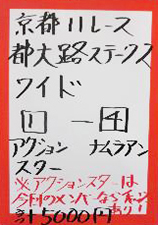 京都11レース
都大路ステークス
ワイド
1 — 4
アクションスター
ナムラアン
※アクションスターは
今回のメンバーならチャンスあり!
計5000円